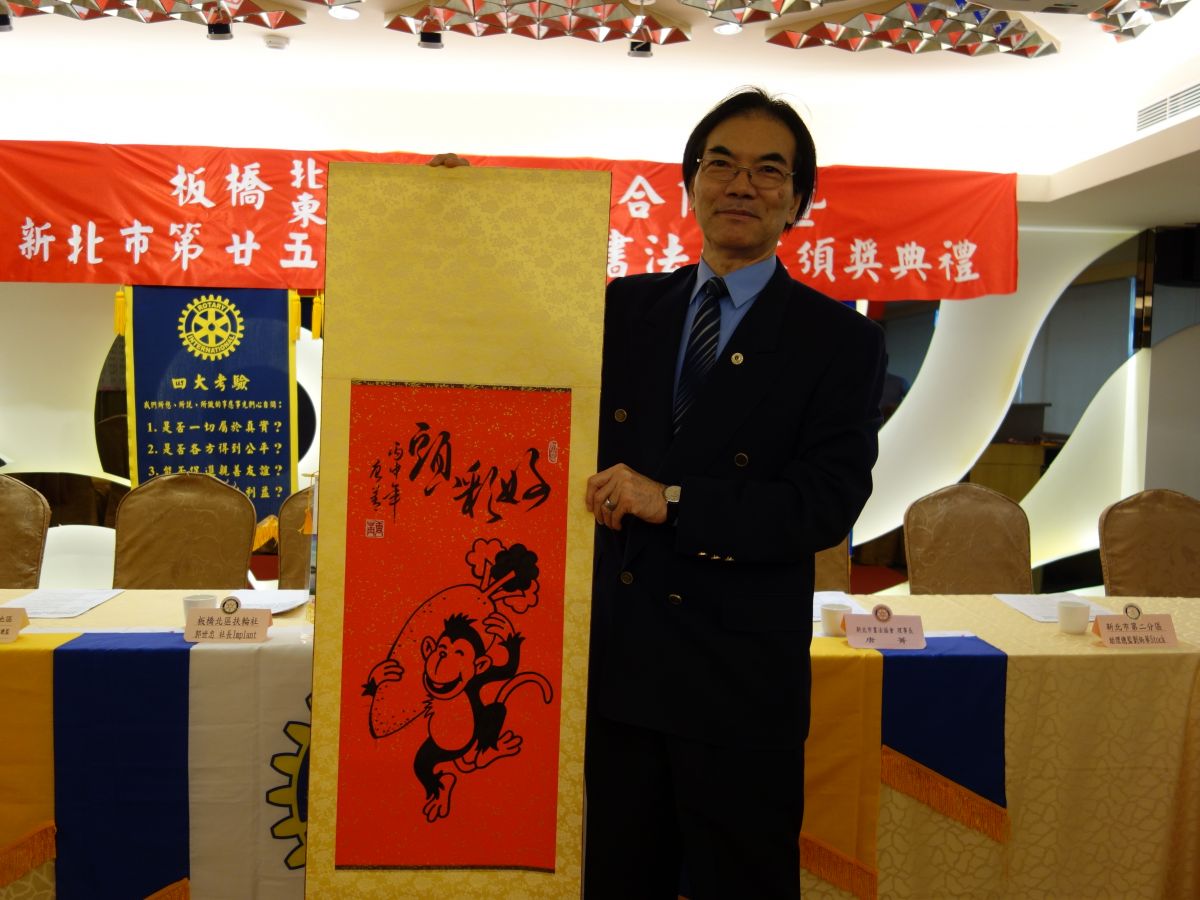 板橋北東 合
新北市第廿五 書法 頒獎典禮
ROTARY
INTERNATIONAL
四大考驗
我們所想、所說、所做的事應事先捫心自問：
1.是否一切屬於真實？
2.是否各方得到公平？
3.能否促進親善友誼？
利益？
好彩頭
丙申年
板橋北區扶輪社
郭世忠 社長Implant
新北市書法協會 理事長
唐菁
新北市第二分區
助理總監劉炳華Stock